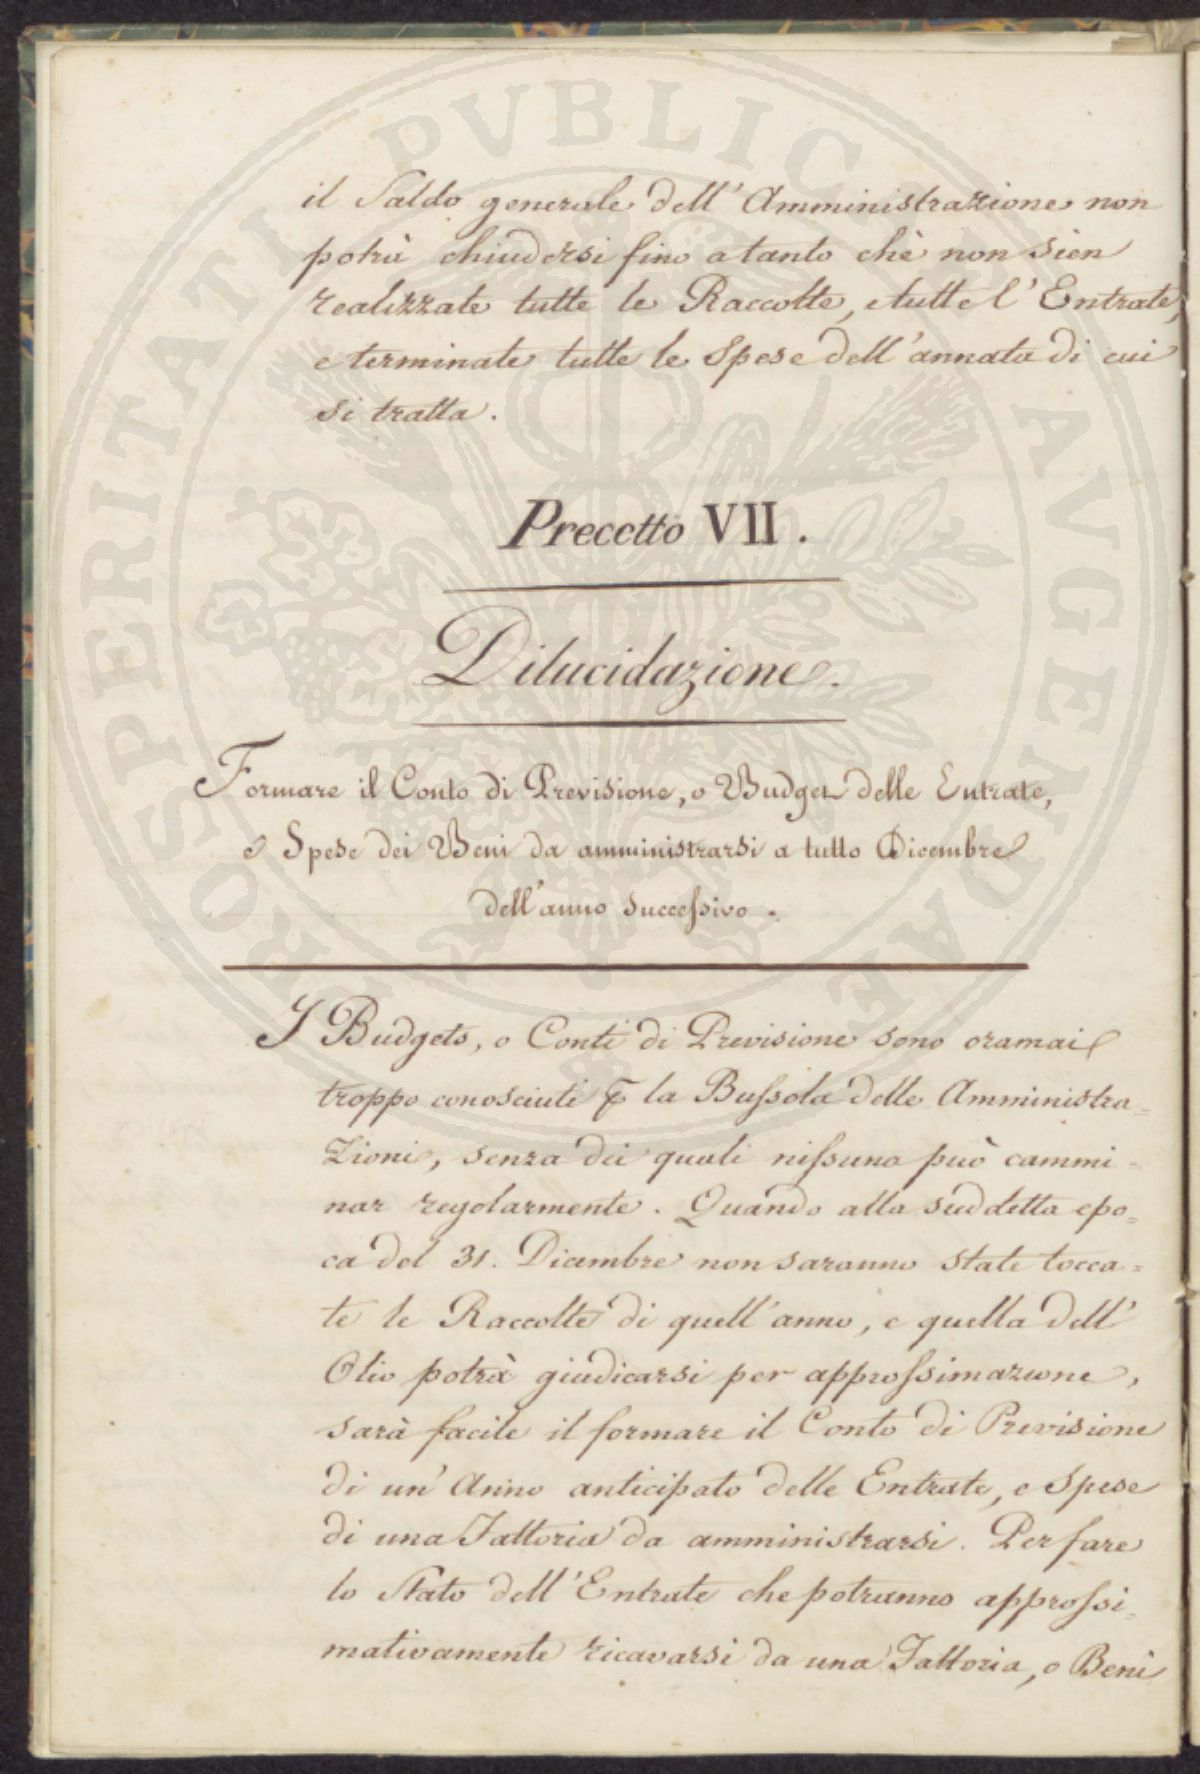 il Saldo generale dell'Amministrazione non
potrà chiudersi fino a tanto chè non sien
realizzate tutte le Raccolte, e tutte l'Entrate,
e terminate tutte le Spese dell'annata di cui
si tratta.
Precetto VII.
Dilucidazione.
Formare il Conto di Previsione, o Budget delle Entrate,
e Spese dei Beni da amministrarsi a tutto Dicembre
dell'anno successivo.
I Budgets, o Conti di Previsione sono oramai
troppo conosciuti la Bussola delle Amministra=
zioni, senza dei quali nissuno può cammi=
nar regolarmente. Quando alla suddetta epo=
ca del 31. Dicembre non saranno state tocca=
te le Raccolte di quell'anno, e quella dell'
Olio potrà giudicarsi per approssimazione,
sarà facile il formare il Conto di Previsione
di un'Anno anticipato delle Entrate, e Spese
di una Fattoria da amministrarsi. Per fare
lo Stato dell'Entrate che potranno approssi=
mativamente ricavarsi da una Fattoria, o Beni
PROSPERITATI PVBLICAE AVGENDAE